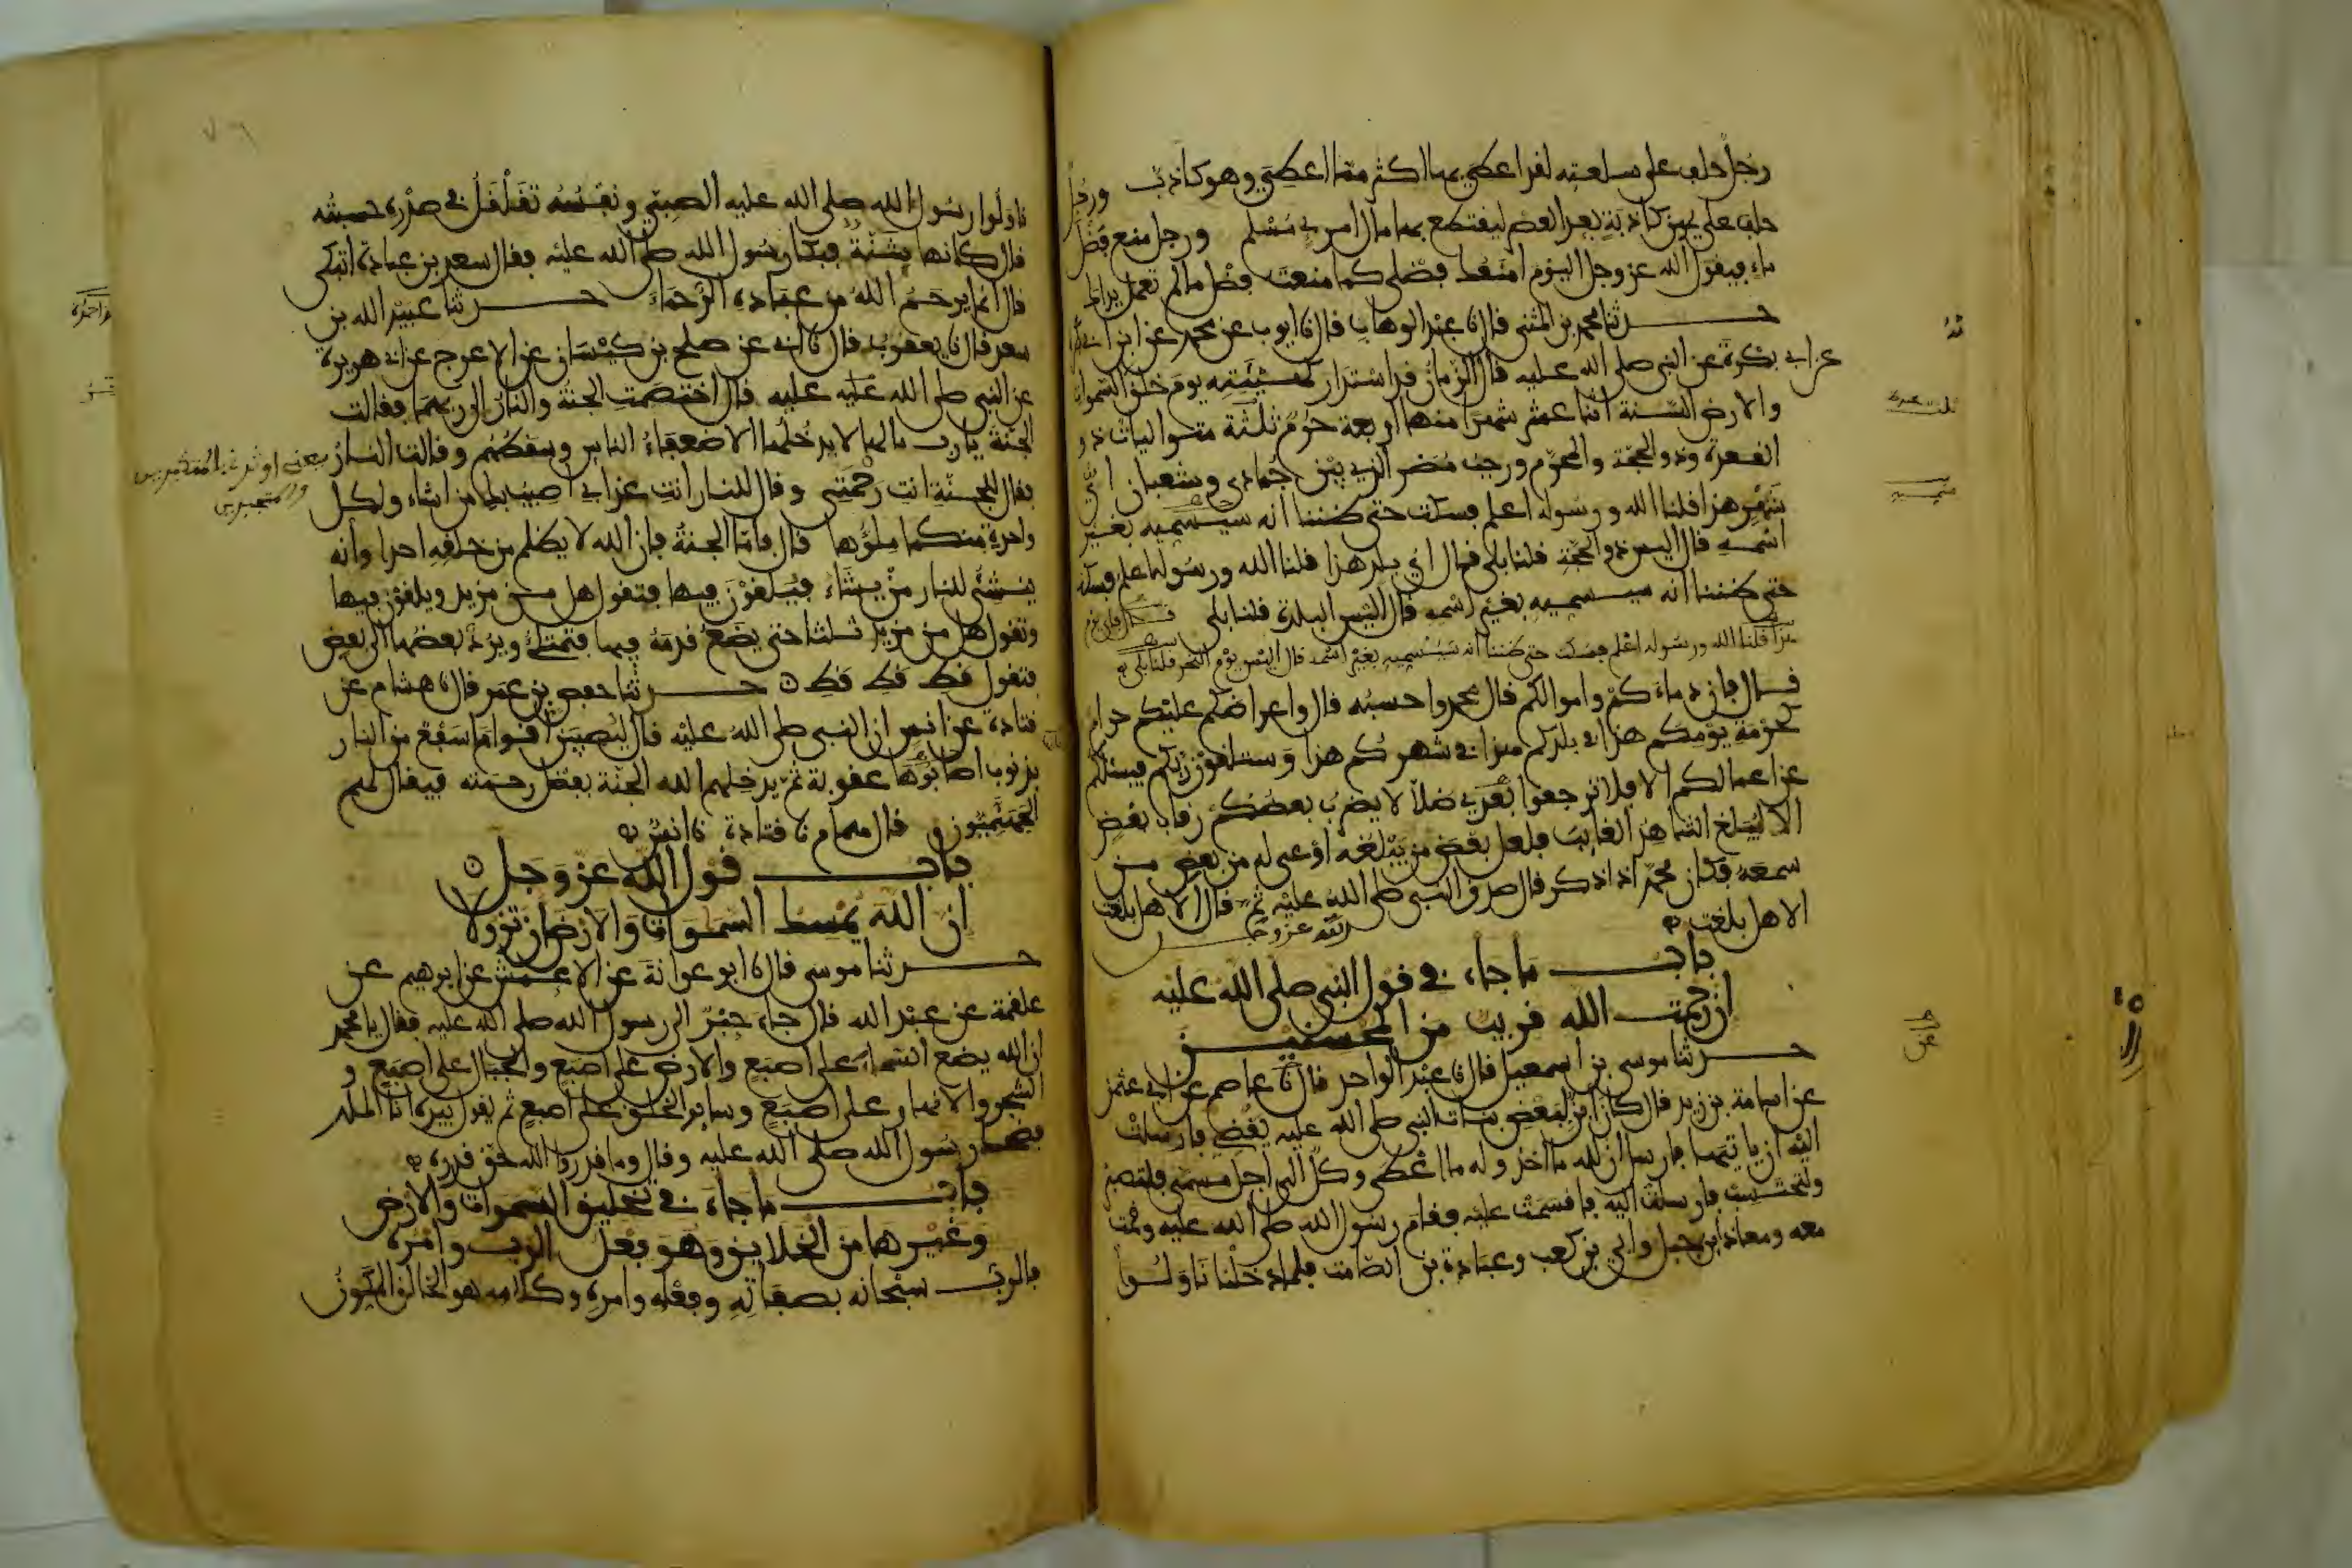 رجل حلف على سلعته لقد اعطي بها اكثر مما اعطي وهو كاذب ورجل
حلف على يمين كاذبة بعد العصر ليقتطع بها مال امرئ مسلم ورجل منع فضل
ماء فيقول الله عز وجل اليوم امنعك فضلي كما منعت فضل ما لم تعمل يداك
حدثنا محمد بن المثنى قال نا عبد الوهاب قال نا ايوب عن محمد عن ابن ابي بكرة
عن ابي بكرة عن النبي صلى الله عليه قال الزمان قد استدار كهيئته يوم خلق السموات
والارض السنة اثنا عشر شهرا منها اربعة حرم ثلثة متواليات ذو
القعدة وذو الحجة والمحرم ورجب مضر الذي بين جمادى وشعبان اي
شهر هذا قلنا الله ورسوله اعلم فسكت حتى ظننا انه سيسميه بغير
اسمه قال اليس ذو الحجة قلنا بلى قال اي بلد هذا قلنا الله ورسوله اعلم فسكت
حتى ظننا انه سيسميه بغير اسمه قال اليس البلدة قلنا بلى قال فاي يوم
هذا قلنا الله ورسوله اعلم فسكت حتى ظننا انه سيسميه بغير اسمه قال اليس يوم النحر قلنا بلى
قال فان دماءكم واموالكم قال محمد واحسبه قال واعراضكم عليكم حرام
كحرمة يومكم هذا في بلدكم هذا في شهركم هذا وستلقون ربكم فيسئلكم
عن اعمالكم الا فلا ترجعوا بعدي ضلالا يضرب بعضكم رقاب بعض
الا ليبلغ الشاهد الغائب فلعل بعض من يبلغه اوعى له من بعض من
سمعه فكان محمد اذا ذكر قال صدق النبي صلى الله عليه ثم قال الا هل بلغت
الا هل بلغت
باب ما جاء في قول النبي صلى الله عليه
الله عز وجل
ان رحمت الله قريب من المحسنين
حدثنا موسى بن اسمعيل قال نا عبد الواحد قال نا عاصم عن ابي عثمن
عن اسامة بن زيد قال كان ابن لبعض بنات النبي صلى الله عليه يقضي فارسلت
اليه ان ياتيها فارسل ان لله ما اخذ وله ما اعطى وكل الى اجل مسمى فلتصبر
ولتحتسب فارسلت اليه فاقسمت عليه فقام رسول الله صلى الله عليه وقمت
معه ومعاذ بن جبل وابي بن كعب وعبادة بن الصامت فلما دخلنا ناولوا
ناولوا رسول الله صلى الله عليه الصبي ونفسه تقلقل في صدره حسبته
قال كانها شنة فبكى رسول الله صلى الله عليه فقال سعد بن عبادة اتبكي
قال انما يرحم الله من عباده الرحماء حدثنا عبيد الله بن
سعد قال نا يعقوب قال نا ابي عن صلح بن كيسان عن الاعرج عن ابي هريرة
عن النبي صلى الله عليه عليه قال اختصمت الجنة والنار الى ربهما فقالت
الجنة يا رب ما لها لا يدخلها الا ضعفاء الناس وسقطهم وقالت النار
يعني اوثرت بالمتكبرين
والمتجبرين
فقال للجنة انت رحمتي وقال للنار انت عذابي اصيب بك من اشاء ولكل
واحدة منكما ملؤها قال فاما الجنة فان الله لا يظلم من خلقه احدا وانه
ينشئ للنار من يشاء فيلقون فيها فتقول هل من مزيد ويلقون فيها
وتقول هل من مزيد ثلثا حتى يضع قدمه فيها فتمتلئ ويرد بعضها الى بعض
فتقول قط قط قط حدثنا حفص بن عمر قال نا هشام عن
قتادة عن انس ان النبي صلى الله عليه قال ليصيبن اقواما سفع من النار
بذنوب اصابوها عقوبة ثم يدخلهم الله الجنة بفضل رحمته فيقال لهم
الجهنميون و قال همام نا قتادة نا انس
باب قول الله عز وجل
ان الله يمسك السموات والارض ان تزولا
حدثنا موسى قال نا ابو عوانة عن الاعمش عن ابرهيم عن
علقمة عن عبد الله قال جاء حبر الى رسول الله صلى الله عليه فقال يا محمد
ان الله يضع السماء على اصبع والارض على اصبع والجبال على اصبع و
الشجر والانهار على اصبع وسائر الخلق على اصبع ثم يقول بيده انا الملك
فضحك رسول الله صلى الله عليه وقال وما قدروا الله حق قدره
باب ما جاء في تخليق السموات والارض
وغيرها من الخلايق وهو فعل الرب وامره
فالرب سبحانه بصفاته وفعله وامره وكلامه هو الخالق المكون